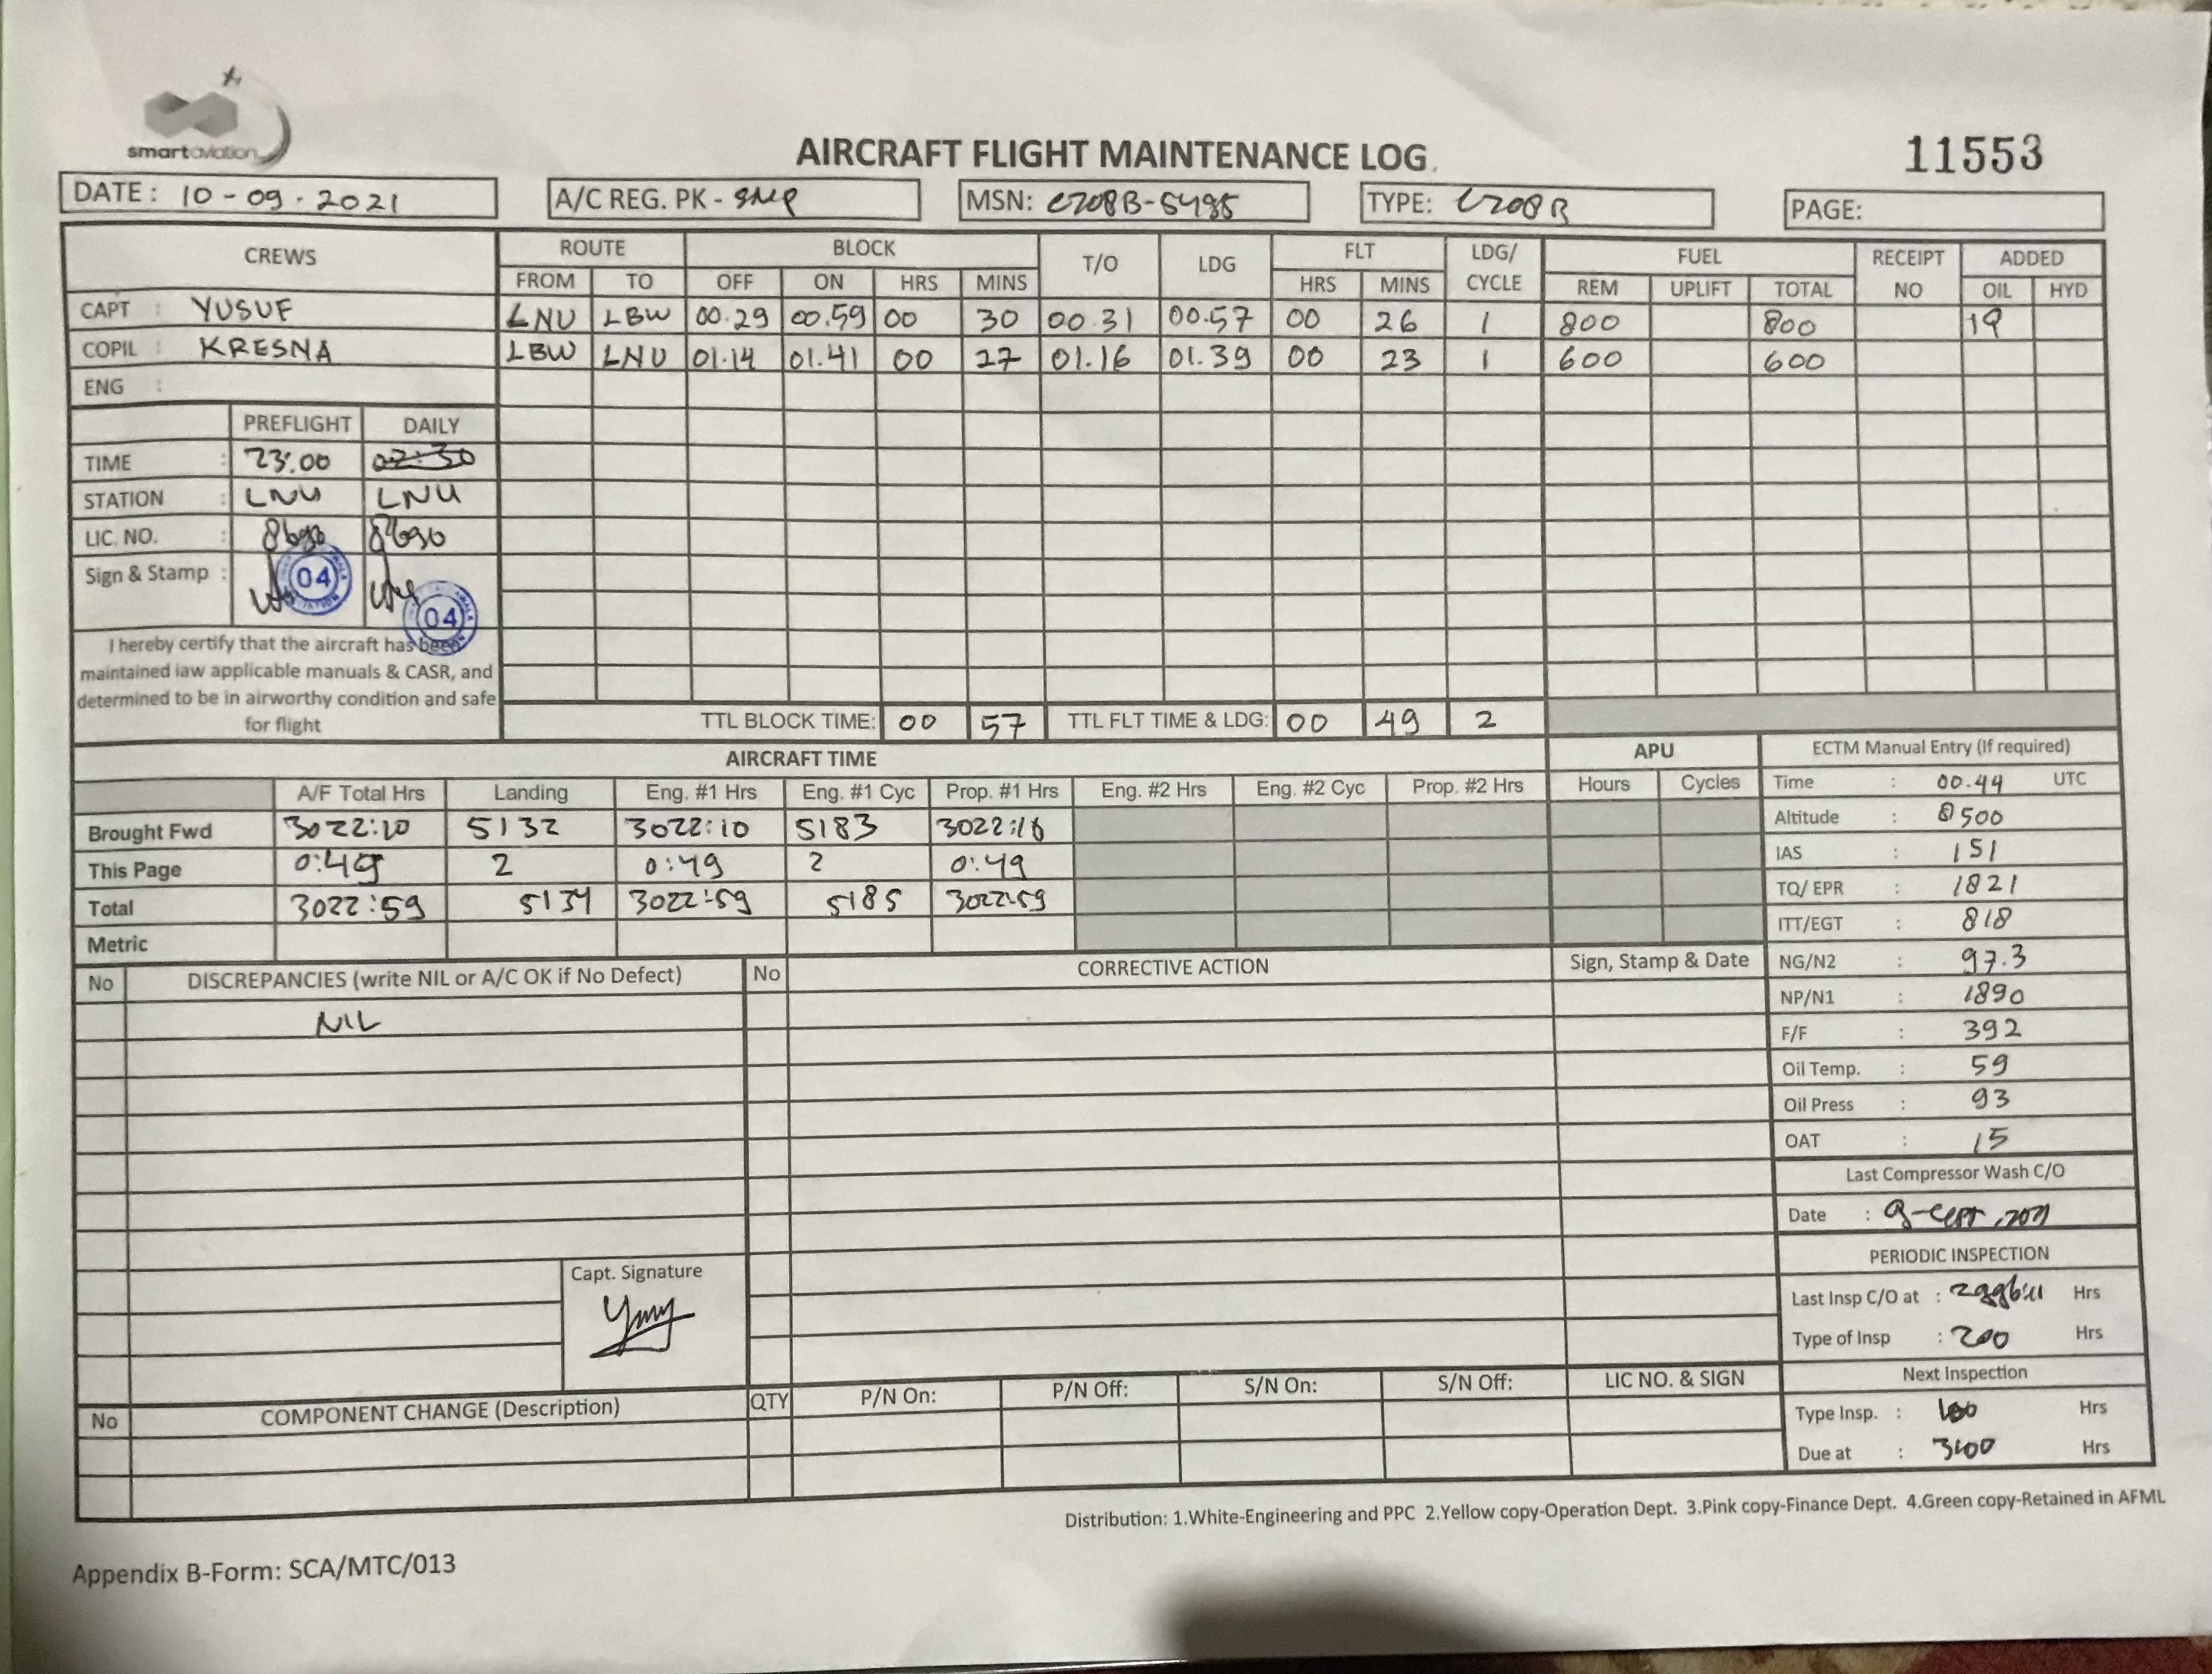 smartaviation
AIRCRAFT FLIGHT MAINTENANCE LOG
11553
DATE: 10-09-2021 A/C REG. PK - SNP MSN: C208B-5485 TYPE: C208B PAGE:
CREWS ROUTE BLOCK T/O LDG FLT LDG/ CYCLE FUEL RECEIPT NO ADDED
FROM TO OFF ON HRS MINS HRS MINS REM UPLIFT TOTAL OIL HYD
CAPT : YUSUF LNU LBW 00.29 00.59 00 30 00.31 00.57 00 26 1 800 800 19
COPIL : KRESNA LBW LNU 01.14 01.41 00 27 01.16 01.39 00 23 1 600 600
ENG :
PREFLIGHT DAILY
TIME : 23:00 02:30
STATION : LNU LNU
LIC. NO. : 8690 8690
Sign & Stamp :
04
04
I hereby certify that the aircraft has been
maintained iaw applicable manuals & CASR, and
determined to be in airworthy condition and safe
for flight
TTL BLOCK TIME: 00 57 TTL FLT TIME & LDG: 00 49 2
AIRCRAFT TIME APU ECTM Manual Entry (If required)
A/F Total Hrs Landing Eng. #1 Hrs Eng. #1 Cyc Prop. #1 Hrs Eng. #2 Hrs Eng. #2 Cyc Prop. #2 Hrs Hours Cycles
Brought Fwd 3022:10 5132 3022:10 5183 3022:10
This Page 0:49 2 0:49 2 0:49
Total 3022:59 5134 3022:59 5185 3022:59
Metric
Time : 00.44 UTC
Altitude : 8500
IAS : 151
TQ/ EPR : 1821
ITT/EGT : 818
NG/N2 : 97.3
NP/N1 : 1890
F/F : 392
Oil Temp. : 59
Oil Press : 93
OAT : 15
Last Compressor Wash C/O
Date : 9-sept, 2021
PERIODIC INSPECTION
Last Insp C/O at : Hrs
Type of Insp : 200 Hrs
Next Inspection
Type Insp. : 100 Hrs
Due at : 3100 Hrs
No DISCREPANCIES (write NIL or A/C OK if No Defect) No CORRECTIVE ACTION Sign, Stamp & Date
NIL
Capt. Signature
No COMPONENT CHANGE (Description) QTY P/N On: P/N Off: S/N On: S/N Off: LIC NO. & SIGN
Distribution: 1.White-Engineering and PPC 2.Yellow copy-Operation Dept. 3.Pink copy-Finance Dept. 4.Green copy-Retained in AFML
Appendix B-Form: SCA/MTC/013